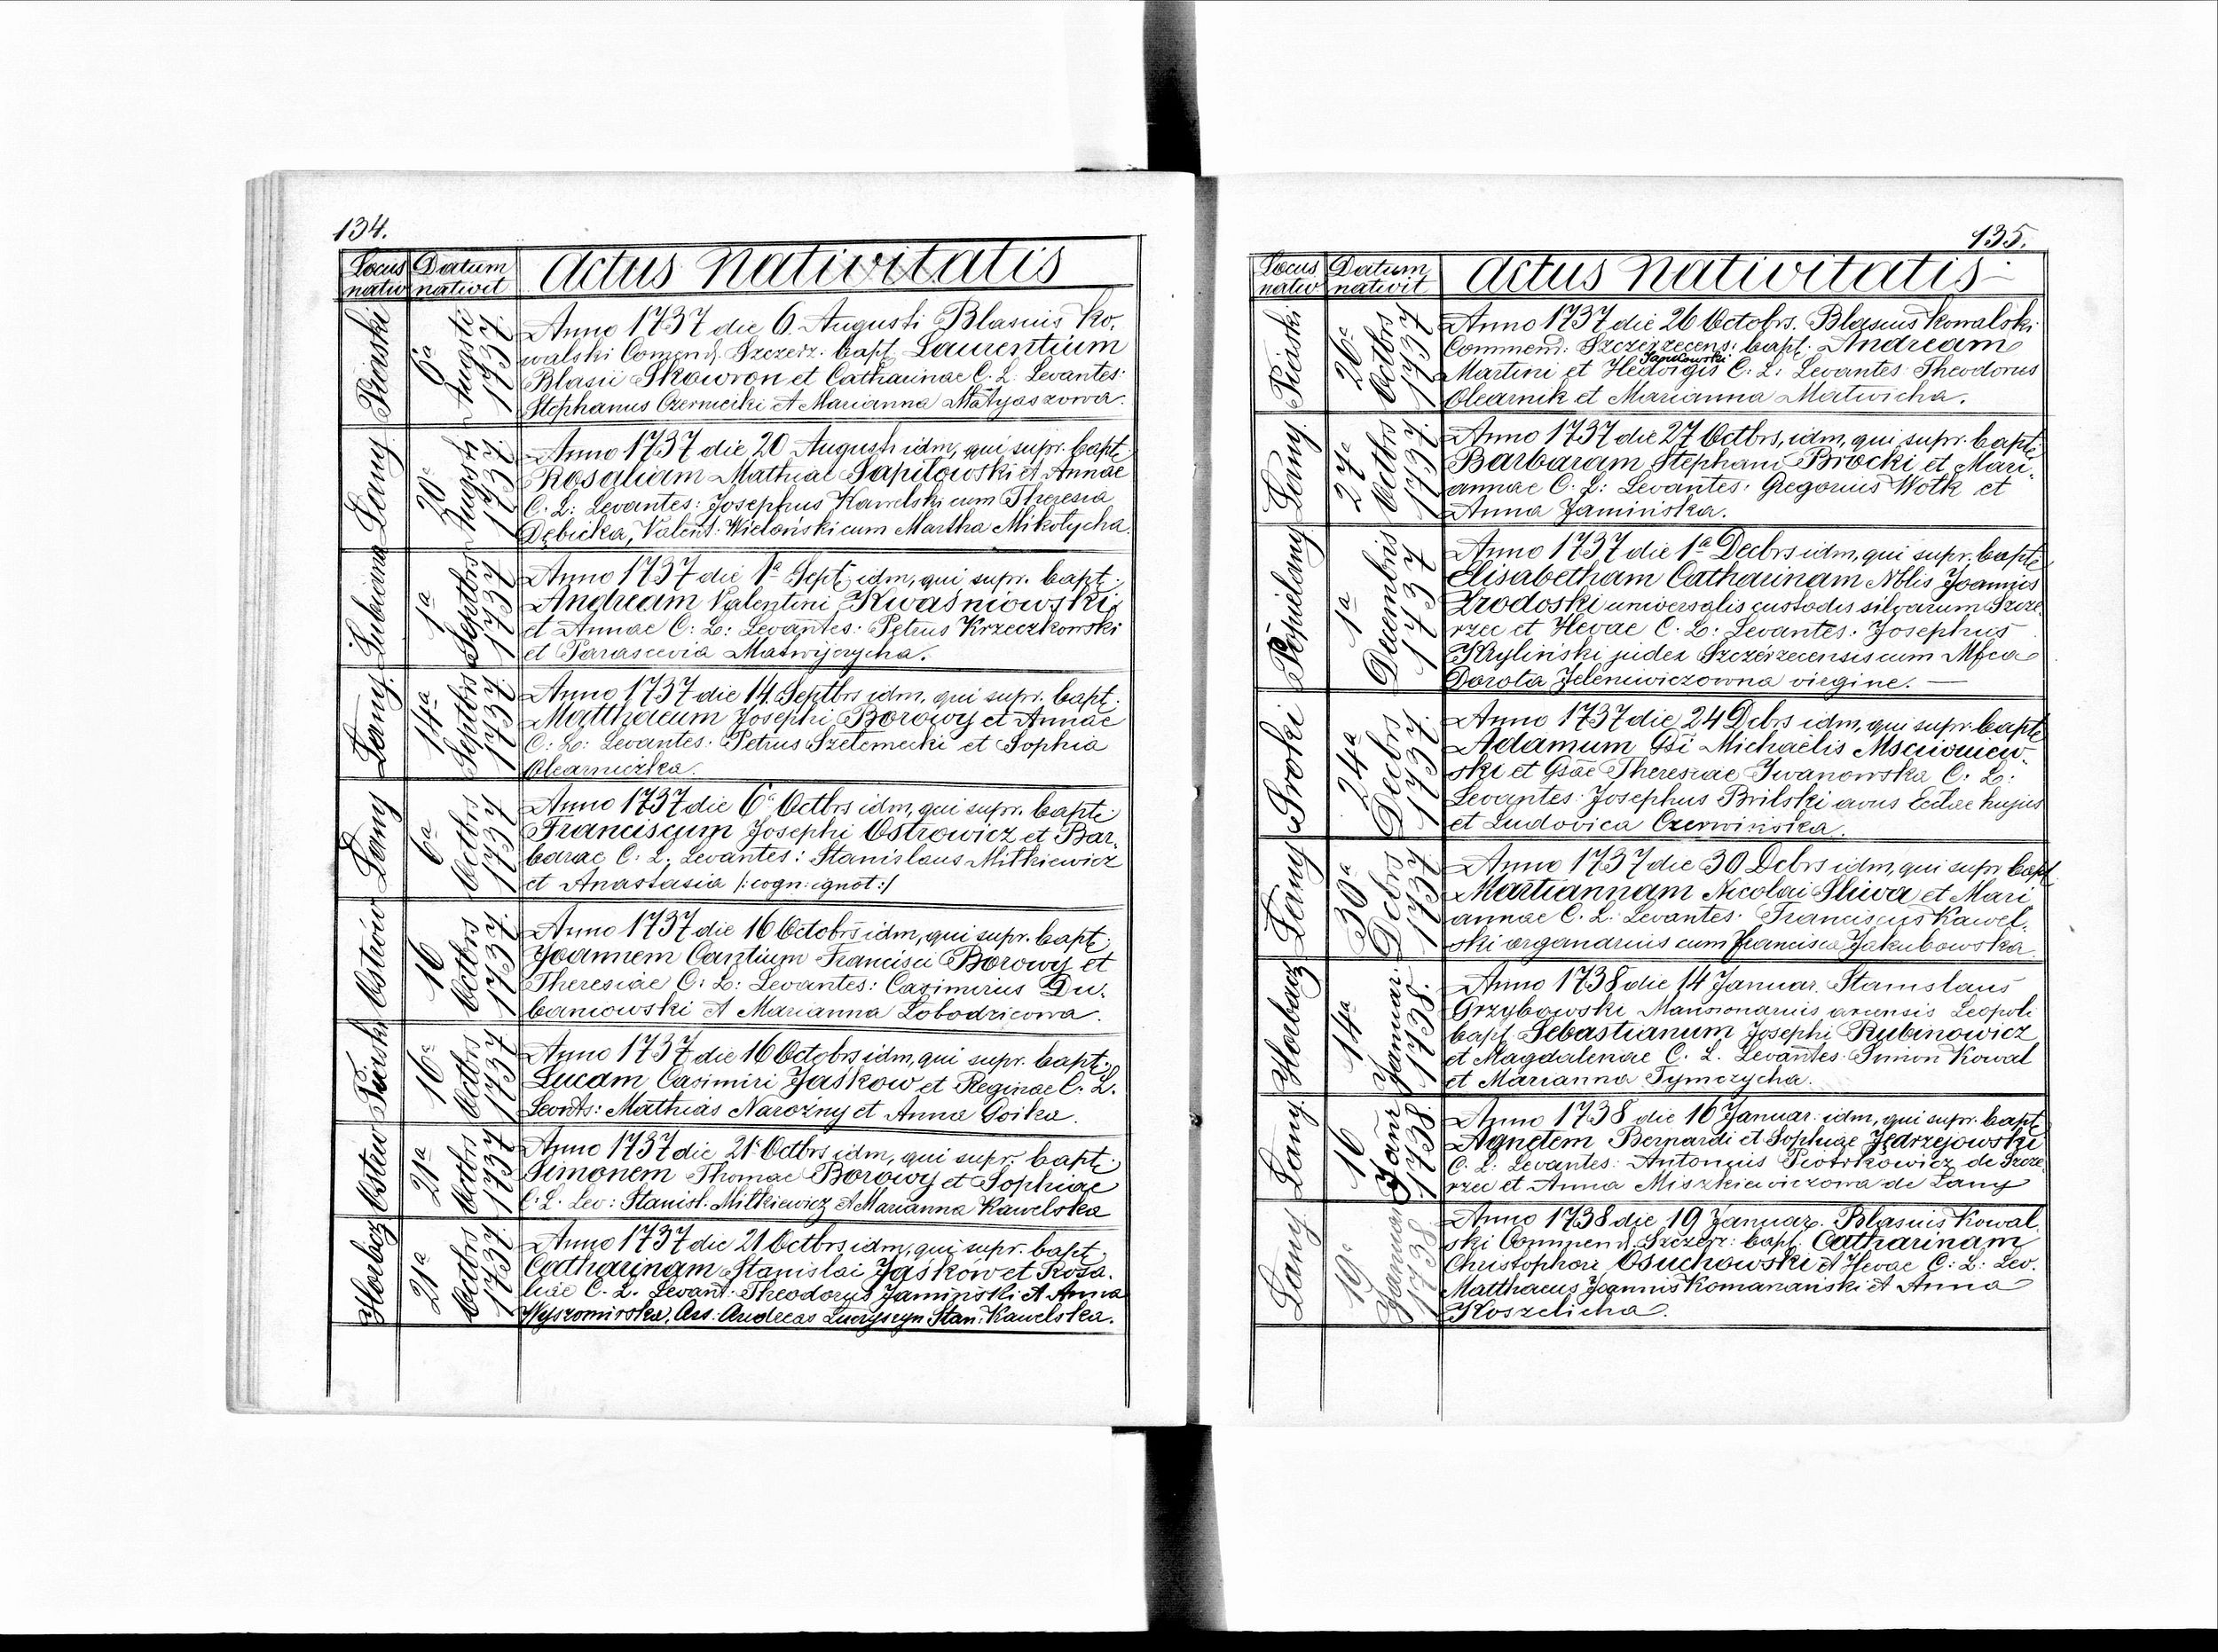 134.
Locus nativ
Datum nativit
Actus Nativitatis
Piaski
6a Augsti 1737
Anno 1737 die 6. Augusti Blasius Ko-
walski Comend. Szczerz. bapt. Laurentium
Blasii Skowron et Catharinae C. L: Levantes:
Stephanus Czernicki et Marianna Matyaszowa.
Lany
20a Augusti 1737
Anno 1737 die 20 Augusti idm, qui supr. bapt:
Rosaliam Mathiae Sapilowski et Annae
C. L: Levantes: Josephus Kawelski cum Theresia
Dębicka, Valent: Wielonski cum Martha Mikołycha.
Lubiana
1a Septbrs 1737
Anno 1737 die 1a Sept. idm, qui supr. bapt.
Andream Valentini Kwaśniowski
et Annae C: L: Levantes: Petrus Krzeczkowski
et Parascevia Matwijczycha.
Lany
14a Septbrs 1737
Anno 1737 die 14. Septbrs idm, qui supr. bapt.
Matthaeum Josephi Borowy et Annae
C: L: Levantes: Petrus Szełemecki et Sophia
Olearniczka.
Lany
6a Octbrs 1737
Anno 1737 die 6a Octbrs idm, qui supr. bapt:
Franciscum Josephi Ostrowicz et Bar-
barae C. L. Levantes: Stanislaus Mitkiewicz
et Anastasia /:cogn: ignot:/
Ostrów
16 Octbrs 1737
Anno 1737 die 16 Octobrs idm, qui supr. bapt.
Joannem Cantium Francisci Borowy et
Theresiae C: L: Levantes: Casimirus Du-
baniowski et Marianna Lobodzicowa.
Piaski
16a Octbrs 1737
Anno 1737 die 16 Octobrs idm, qui supr. bapt:
Lucam Casimiri Jaśkow et Reginae C. L.
Levnts: Mathias Narożny et Anna Goika.
Ostrów
21a Octbrs 1737
Anno 1737 die 21a Octbrs idm, qui supr. bapt:
Simonem Thomae Borowy et Sophiae
C: L. Lev: Stanisl. Mitkiewicz et Marianna Kawelska
Horbacz
21a Octbrs 1737
Anno 1737 die 21 Octbrs idm, qui supr. bapt.
Catharinam Stanislai Jaśków et Rosa-
liae C. L. Levant: Theodorus Jaminski et Anna
Wyszomirska, Ass. Andreas Stan: Kawelska.
135.
Locus nativ
Datum nativit
Actus Nativitatis
Piaski
26a Octbrs 1737
Anno 1737 die 26 Octobrs. Blasius Kowalski
Commend: Szczerzecens: bapt: Andream
Sapilowski
Martini et Hedvigis C: L: Levantes Theodorus
Olearnik et Marianna Matwicha.
Lany
27a Octbrs 1737
Anno 1737 die 27 Octbrs, idm, qui supr. bapt:
Barbaram Stephani Brocki et Mari-
annae C. L: Levantes: Gregorius Wotk et
Anna Jaminska.
Popielany
1a Decembris 1737
Anno 1737 die 1a Decbrs idm, qui supr. bapt:
Elisabetham Catharinam Nblis Joannis
Zrodoski universalis custodis silvarum Szcze-
rzec et Hevae C. L: Levantes: Josephus
Kryliński judex Szczerzecensis cum Mfca
Dorota Jeleniewiczowna virgine. —
Sroki
24a Decbrs 1737
Anno 1737 die 24 Dcbrs idm, qui supr. bapt:
Adamum Gsi Michaelis Msciwiew-
ski et Gsae Theresiae Iwanowska C: L:
Levantes: Josephus Brilski avus Eccliae hujus
et Ludovica Czerwińska.
Lany
30a Dcbrs 1737
Anno 1737 die 30 Dcbrs idm, qui supr bapt.
Mariannam Nicolai Sliwa et Mari
annae C. L: Levantes: Franciscus Kawel-
ski organarius cum Francisca Jakubowska
Horbacz
14a Januar. 1738.
Anno 1738 die 14 Januar. Stanislaus
Grzybowski Mansionarius arcensis Leopoli
bapt. Sebastianum Josephi Rubinowicz
et Magdalenae C. L. Levantes. Simon Kowal
et Marianna Tymczycha.
Lany
16 Januar 1738.
Anno 1738 die 16 Januar. idm, qui supr. bapt:
Agnetem Bernardi et Sophiae Jędrzejowski
C. L: Levantes: Antonius Piotrkowicz de Szcze-
rzec et Anna Miszkiewiczowa de Lany
Lany
19a Januar 1738
Anno 1738 die 19 Januar. Blasius Kowal
ski Commend. Szczerz: bapt. Catharinam
Christophori Osuchowski et Hevae C: L: Lev.
Matthaeus Joannis Komananski et Anna
Koszelicha.